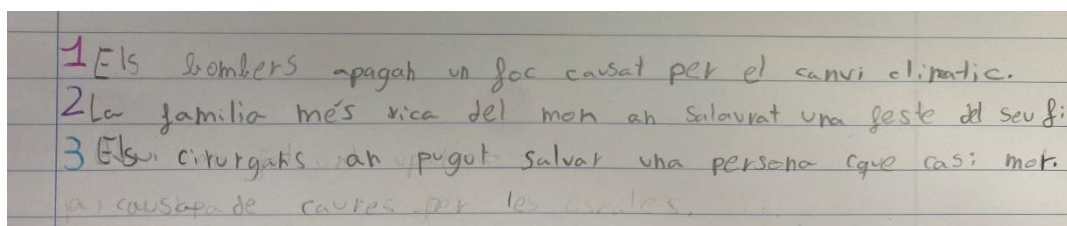 1 Els bombers apagan un foc causat per el canvi climatic.
2 La familia més rica del mon an salavrat una feste del seu fi
3 Els cirurgans an pugut salvar una persona que casi mor.
a causapa de caures per les escales.